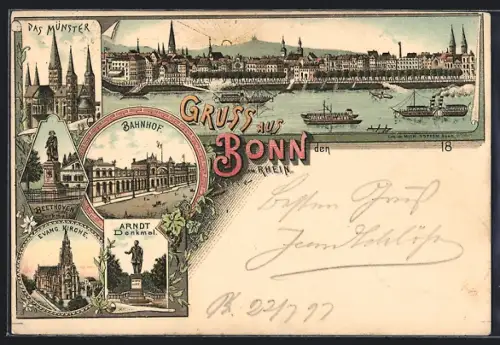 DAS MÜNSTER
GRUSS AUS
BONN
RHEIN.
den 18
BAHNHOF.
BEETHOVEN
EVANG. KIRCHE.
ARNDT
Denkmal.
Besten Gruß
B. 22/7 97